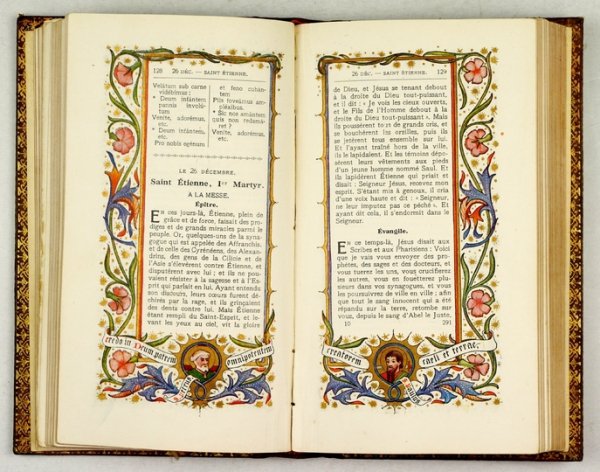 128 26 DÉC. — SAINT ÉTIENNE.
Velátum sub carne
vidébimus:
* Deum infántem
pannis involú-
tum
Veníte, adorémus,
etc.
* Deum infántem,
etc.
Pro nobis egénum
et fœno cubán-
tem
Piis foveámus am-
pléxibus.
* Sic nos amántem
quis non redamá-
ret?
Veníte, adorémus,
etc.
LE 26 DÉCEMBRE.
Saint Étienne, 1er Martyr.
A LA MESSE.
Épître.
EN ces jours-là, Étienne, plein de
grâce et de force, faisait des pro-
diges et de grands miracles parmi le
peuple. Or, quelques-uns de la syna-
gogue qui est appelée des Affranchis,
et de celle des Cyrénéens, des Alexan-
drins, des gens de la Cilicie et de
l'Asie s'élevèrent contre Étienne, et
disputèrent avec lui; et ils ne pou-
vaient résister à la sagesse et à l'Es-
prit qui parlait en lui. Ayant entendu
son discours, leurs cœurs furent dé-
chirés par la rage, et ils grinçaient
des dents contre lui. Mais Étienne
étant rempli du Saint-Esprit, et le-
vant les yeux au ciel, vit la gloire
credo in Deum patrem
omnipotentem
26 DÉC. — SAINT ÉTIENNE. 129
de Dieu, et Jésus se tenant debout
à la droite du Dieu tout-puissant,
et il dit : « Je vois les cieux ouverts,
et le Fils de l'Homme debout à la
droite du Dieu tout-puissant ». Mais
ils poussèrent tous de grands cris, et
se bouchèrent les oreilles, puis ils
se jetèrent tous ensemble sur lui.
Et l'ayant traîné hors de la ville,
ils le lapidaient. Et les témoins dépo-
sèrent leurs vêtements aux pieds
d'un jeune homme nommé Saul. Et
ils lapidèrent Étienne qui priait et
disait : Seigneur Jésus, recevez mon
esprit. S'étant mis à genoux, il cria
d'une voix forte et dit : « Seigneur,
ne leur imputez pas ce péché ». Et
ayant dit cela, il s'endormit dans le
Seigneur.
Évangile.
EN ce temps-là, Jésus disait aux
Scribes et aux Pharisiens : Voici
que je vais vous envoyer des pro-
phètes, des sages et des docteurs, et
vous tuerez les uns, vous crucifierez
les autres, vous en fouetterez plu-
sieurs dans vos synagogues, et vous
les poursuivrez de ville en ville : afin
que tout le sang innocent qui a été
répandu sur la terre, retombe sur
vous, depuis le sang d'Abel le Juste,
10 291
creatorem
cæli et terrae,